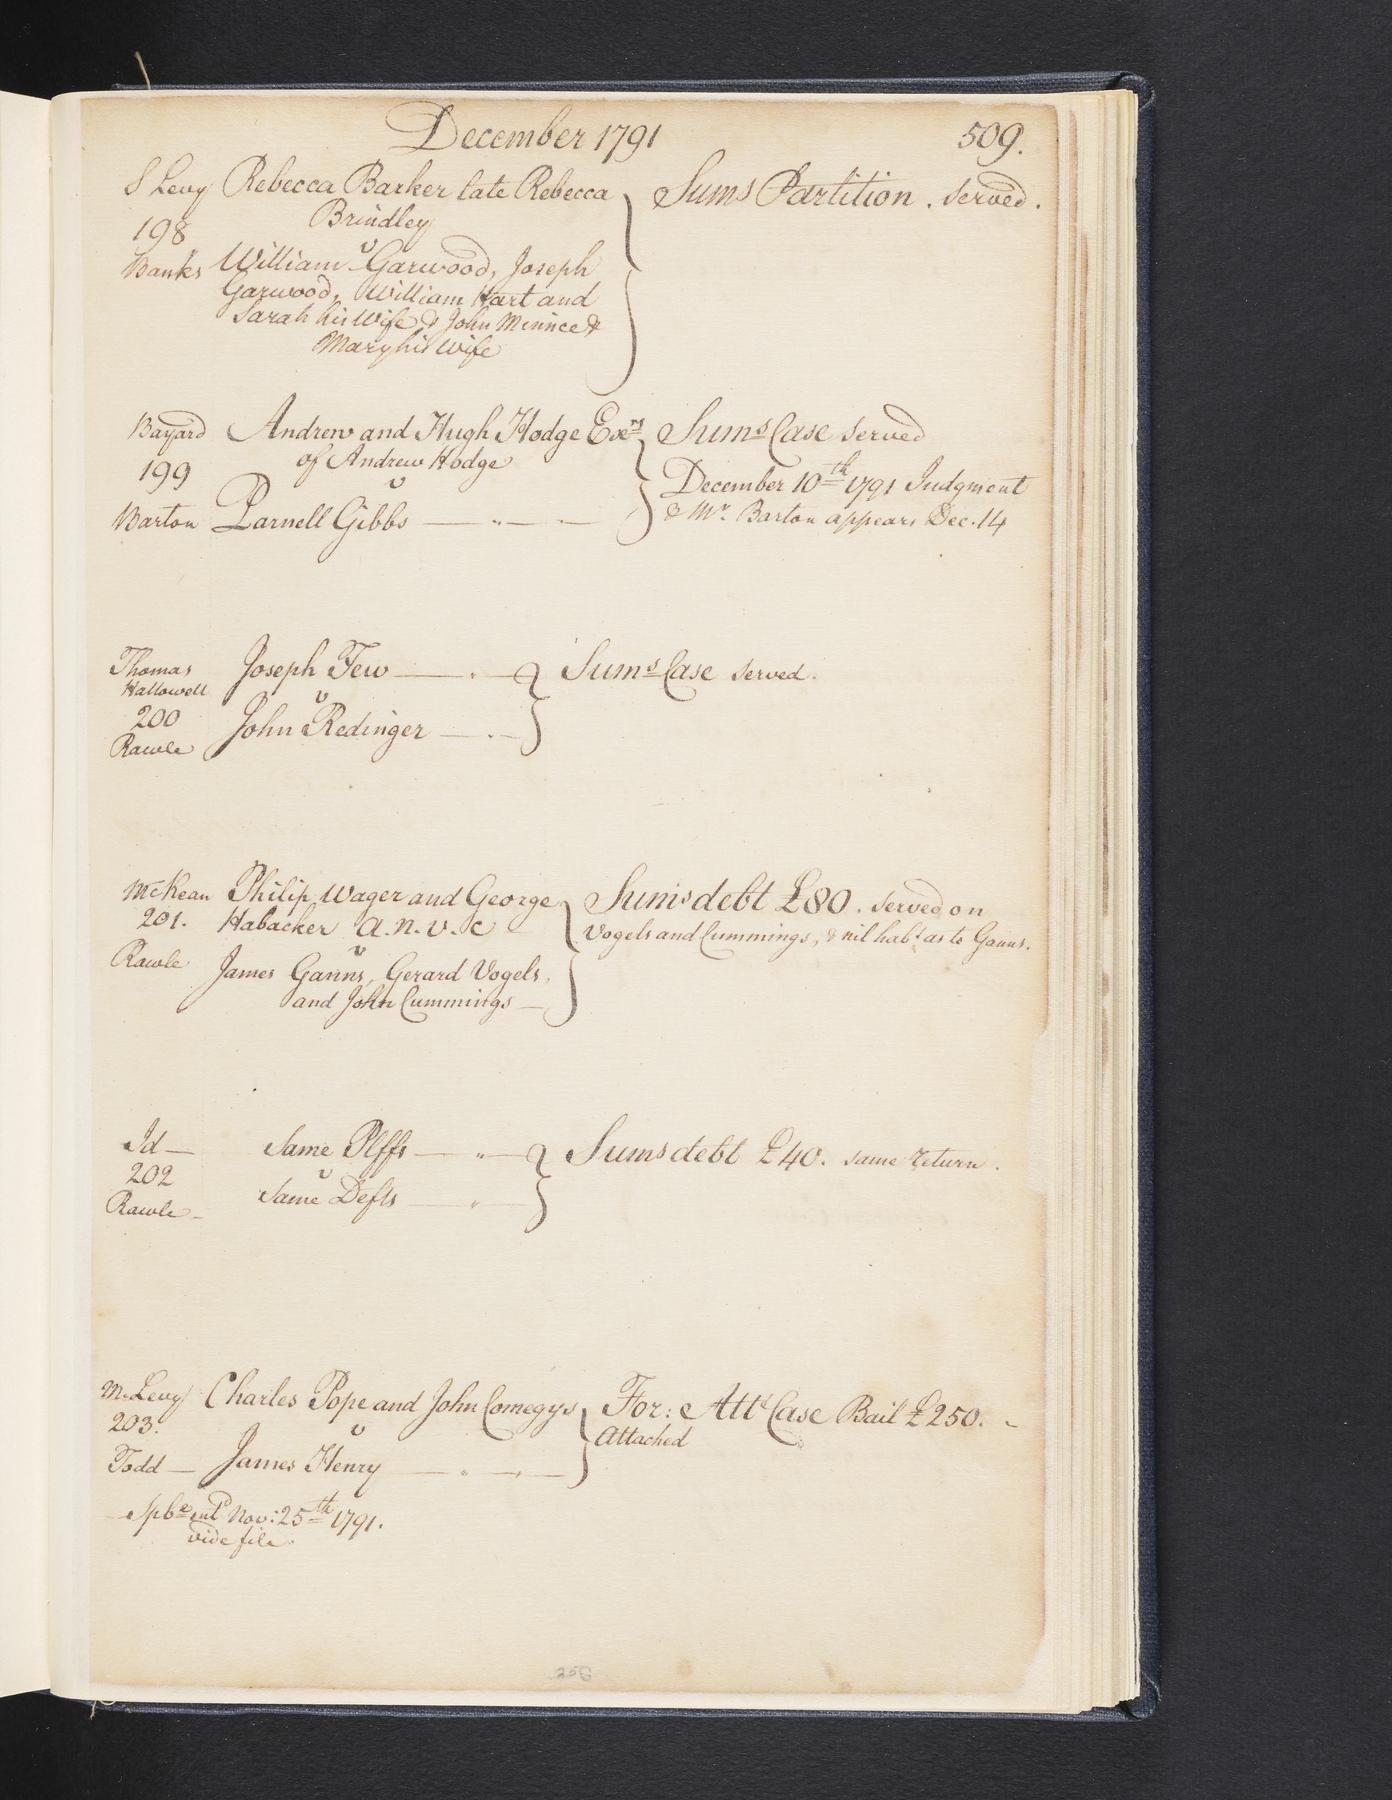 December 1791
509.
S Levy Rebecca Barker late Rebecca
Brindley
198
v
Banks William Garwood, Joseph
Garwood, William Hart and
Sarah his Wife & John Minnce &
Mary his Wife
Sums Partition . Served .
Bayard Andrew and Hugh Hodge Exers
199 of Andrew Hodge
v
Barton Parnell Gibbs
Sums Case Served
December 10th 1791 Judgment
& Mr. Barton appears Dec. 14
Thomas Joseph Few
Hallowell
v
200 John Redinger
Rawle
Sums Case Served .
McKean Philip Wager and George
201. Habacker a.n.v.c
v
Rawle James Ganns, Gerard Vogels,
and John Cummings
Sums debt £80 . Served on
Vogels and Cummings, & nil habt as to Ganns.
Id Same Plffs
202 v
Rawle Same Defts
Sums debt £40. Same return .
M. Levy Charles Pope and John Comegys
203. v
Todd James Henry
For: Att Case Bail £250.
Attached
Spbe entd Nov: 25th 1791.
vide file